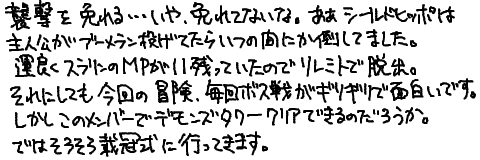 襲撃を免れる…いや、免れてないな。ああシールドヒッポは
主人公がブーメラン投げてたらいつの間にか倒してました。
運良くスラリンのMPが11残っていたのでリレミトで脱出。
それにしても今回の冒険、毎回ボス戦がギリギリで面白いです。
しかしこのメンバーでデモンズタワークリアできるのだろうか。
ではそろそろ戴冠式に行ってきます。